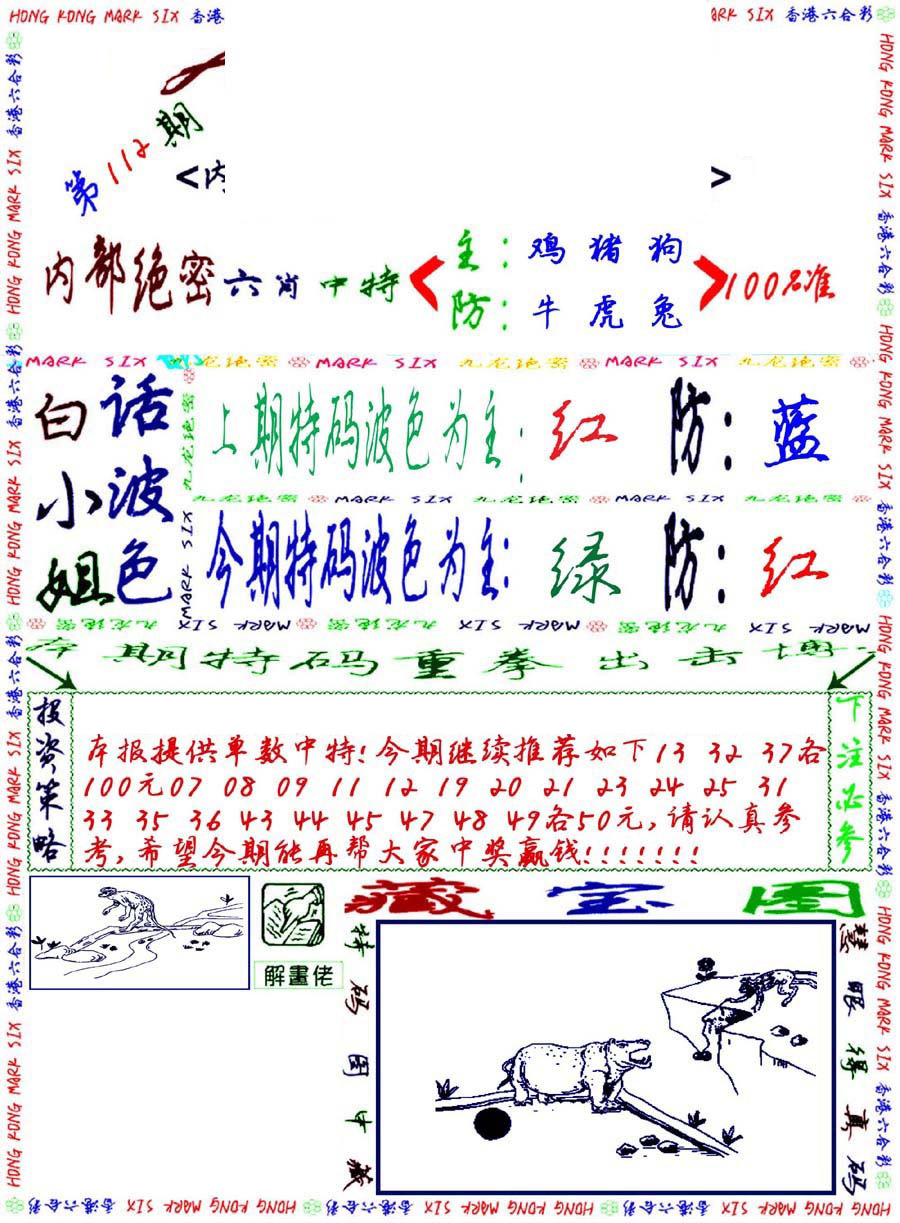 HONG KONG MARK SIX 香港
ARK SIX 香港六合彩
第112期
<内
>
内部绝密六肖中特
主：鸡 猪 狗
防：牛 虎 兔
100%准
MARK SIX 九龙绝密 MARK SIX 九龙绝密 MARK SIX 九龙绝密
白话
小波
姐色
上期特码波色为主：红 防：蓝
九龙绝密 MARK SIX 九龙绝密 MARK SIX 九龙绝密
今期特码波色为主：绿 防：红
MARK SIX 九龙绝密 MARK SIX 九龙绝密 MARK SIX 九龙绝密
本期特码重拳出击博
投资策略
本报提供单数中特！今期继续推荐如下13 32 37各
100元07 08 09 11 12 19 20 21 23 24 25 31
33 35 36 43 44 45 47 48 49各50元，请认真参
考，希望今期能再帮大家中奖赢钱！！！！！！！
下注必参
解畫佬
藏宝图
特码图中藏
慧眼得真码
HONG KONG MARK SIX 香港六合彩 HONG KONG MARK SIX 香港六合彩 HONG KONG MARK SIX 香港六合彩